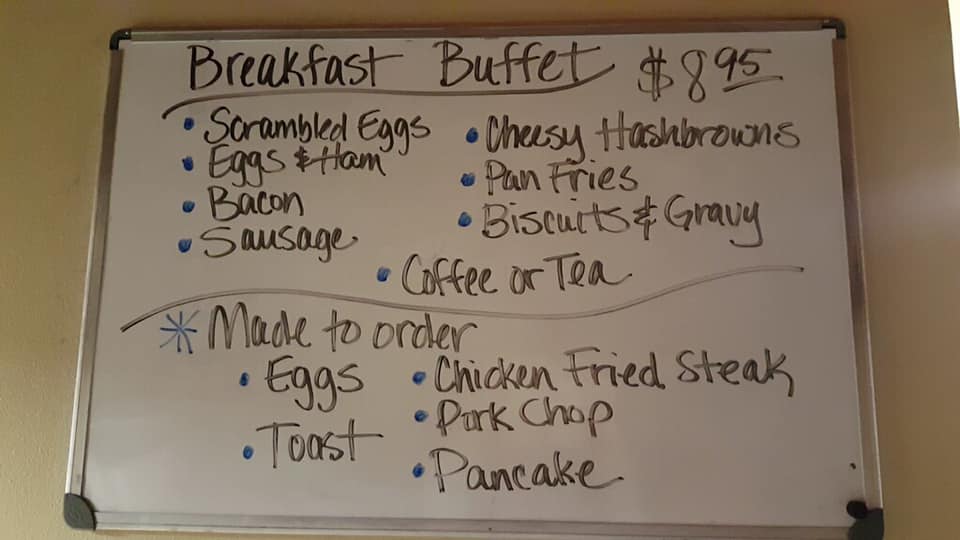 Breakfast Buffet $8.95
• Scrambled Eggs
• Eggs & Ham
• Bacon
• Sausage
• Cheesy Hashbrowns
• Pan Fries
• Biscuits & Gravy
• Coffee or Tea
* Made to order
• Eggs
• Toast
• Chicken Fried Steak
• Pork Chop
• Pancake